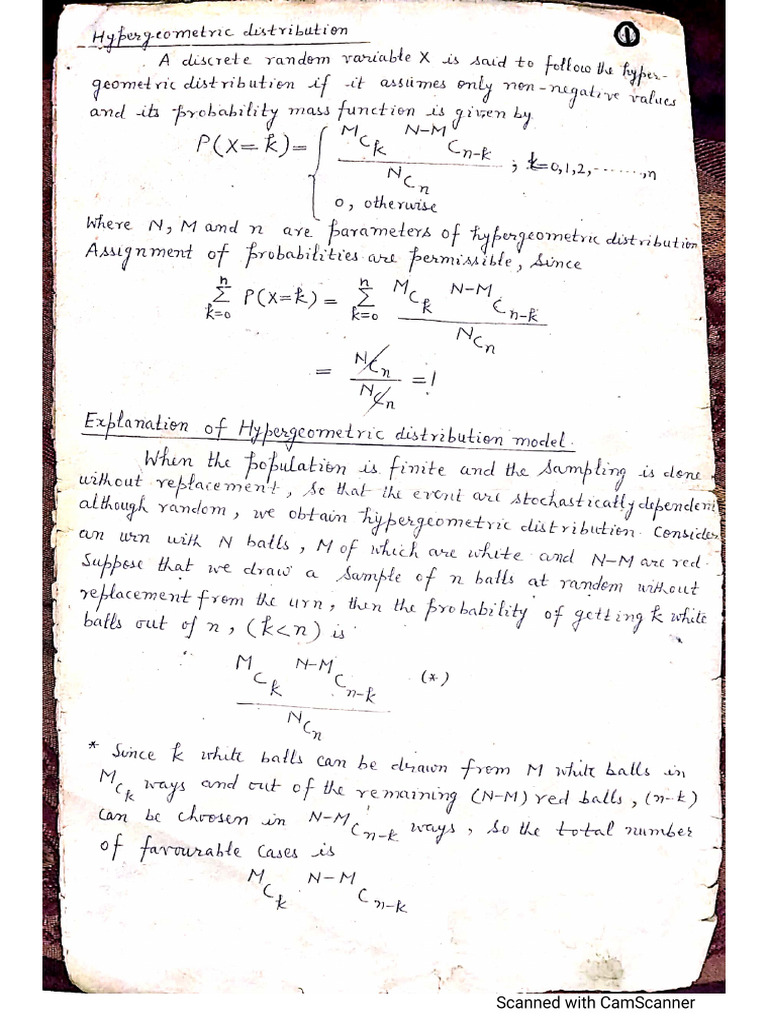 Hypergeometric distribution
1
A discrete random variable X is said to follow the hyper-
geometric distribution if it assumes only non-negative values
and its probability mass function is given by
P(X=k) = { ᴹC_k ᴺ⁻ᴹC_{n-k} / ᴺC_n ; k=0,1,2,.......,n
0, otherwise
Where N, M and n are parameters of hypergeometric distribution
Assignment of probabilities are permissible, since
n∑k=0 P(X=k) = n∑k=0 ᴹC_k ᴺ⁻ᴹC_{n-k} / ᴺC_n
= ᴺC_n / ᴺC_n = 1
Explanation of Hypergeometric distribution model.
When the population is finite and the sampling is done
without replacement, so that the event are stochastically dependent
although random, we obtain hypergeometric distribution. Consider
an urn with N balls, M of which are white and N-M are red.
Suppose that we draw a sample of n balls at random without
replacement from the urn, then the probability of getting k white
balls out of n, (k<n) is
ᴹC_k ᴺ⁻ᴹC_{n-k} / ᴺC_n (*)
* Since k white balls can be drawn from M white balls in
ᴹC_k ways and out of the remaining (N-M) red balls, (n-k)
can be choosen in ᴺ⁻ᴹC_{n-k} ways, so the total number
of favourable cases is
ᴹC_k ᴺ⁻ᴹC_{n-k}
Scanned with CamScanner